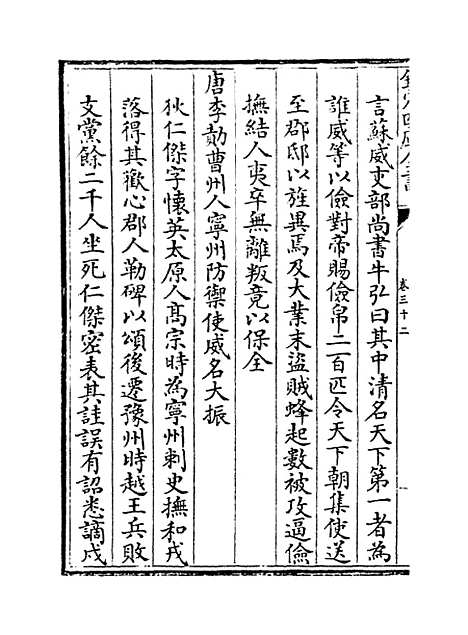 欽定四庫全書
卷三十二
言蘇威吏部尚書牛弘曰其中清名天下第一者為
誰威等以儉對帝賜儉帛二百匹令天下朝集使送
至郡邸以旌異焉及大業末盜賊蜂起數被攻逼儉
撫結人夷卒無離叛竟以保全
唐李勣曹州人寧州防禦使威名大振
狄仁傑字懷英太原人高宗時為寧州刺史撫和戎
落得其歡心郡人勒碑以頌後遷豫州時越王兵敗
支黨餘二千人坐死仁傑密表其詿誤有詔悉謫戍